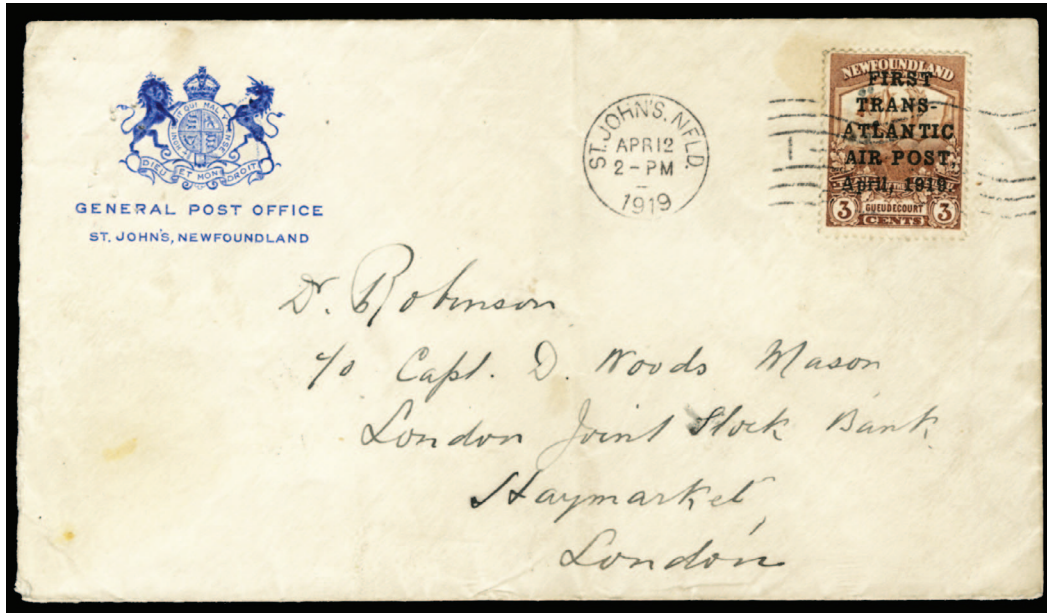 HONI SOIT QUI MAL Y PENSE
DIEU ET MON DROIT
GENERAL POST OFFICE
ST. JOHN'S, NEWFOUNDLAND
ST. JOHN'S, NFLD.
APR 12
2 - PM
1919
NEWFOUNDLAND
FIRST
TRANS-
ATLANTIC
AIR POST,
April, 1919.
3 GUEUDECOURT 3
CENTS
Dr. Robinson
c/o Capt. D. Woods Mason
London Joint Stock Bank
Haymarket,
London